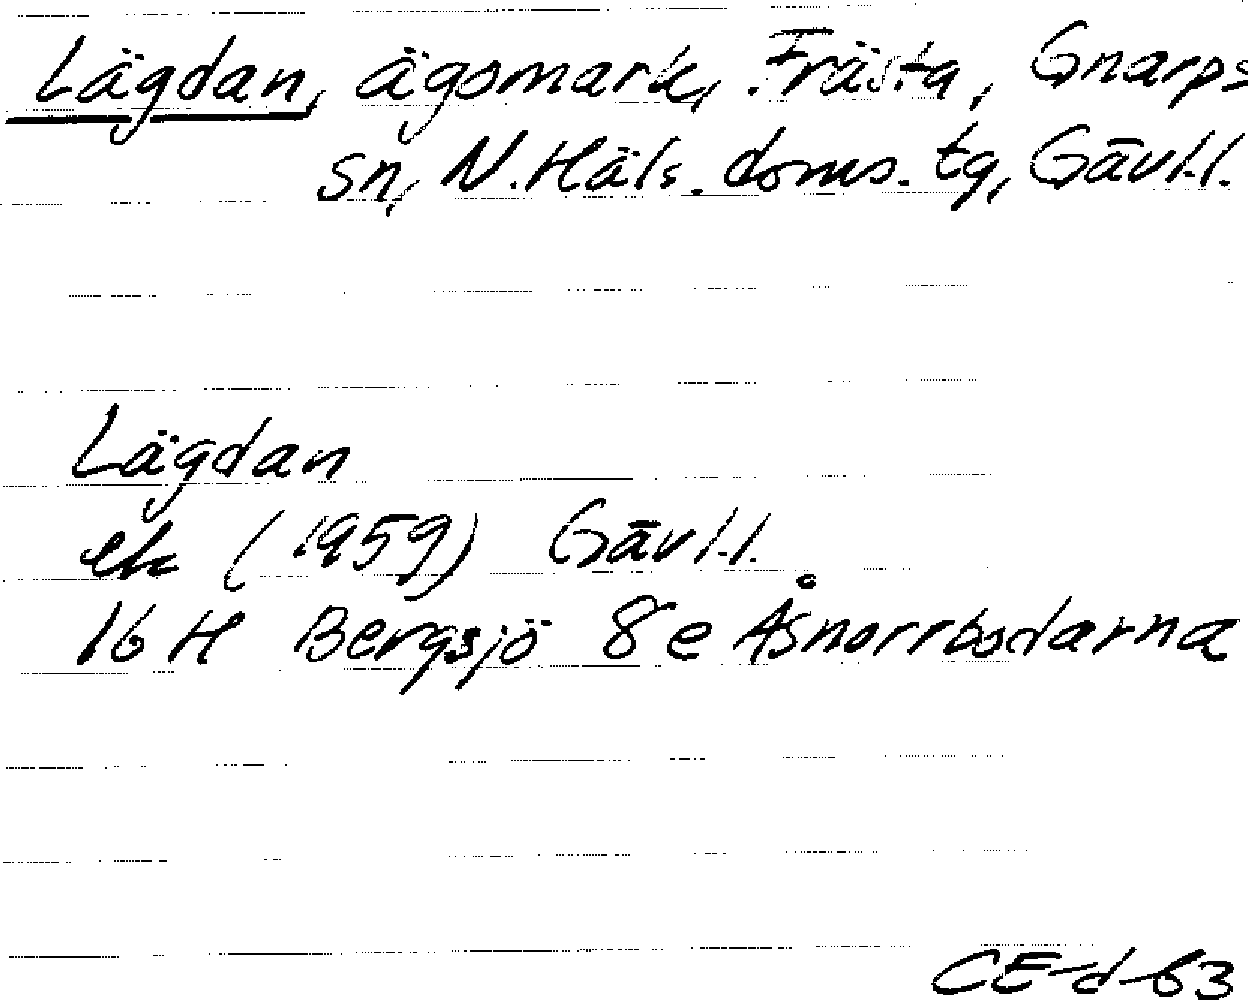 Lägdan, ägomark, Frästa, Gnarps
sn, N. Häls. doms. tg, Gävl.l.
Lägdan
ek (1959) Gävl.l.
16 H Bergsjö 8 e Åsnorrbodarna
CE-d-63